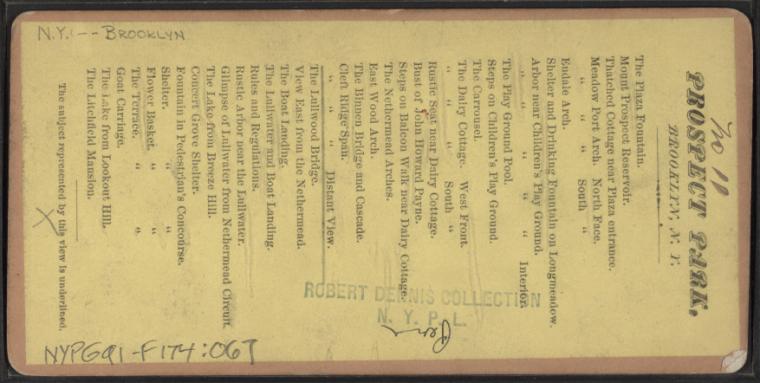 N.Y. -- BROOKLYN
No 11
PROSPECT PARK,
BROOKLYN, N. Y.
The Plaza Fountain.
Mount Prospect Reservoir.
Thatched Cottage near Plaza entrance.
Meadow Port Arch. North Face.
" " " South "
Endale Arch.
Shelter and Drinking Fountain on Longmeadow.
Arbor near Children's Play Ground.
" " " " Interior.
The Play Ground Pool.
Steps on Children's Play Ground.
The Carrousel.
The Dairy Cottage. West Front.
" " " South "
Rustic Seat near Dairy Cottage.
Bust of John Howard Payne.
Steps on Balcon Walk near Dairy Cottage.
The Nethermead Arches.
East Wood Arch.
The Binnen Bridge and Cascade.
Cleft Ridge Span.
" " " Distant View.
The Lullwood Bridge.
View East from the Nethermead.
The Boat Landing.
The Lullwater and Boat Landing.
Rules and Regulations.
Rustic Arbor near the Lullwater.
Glimpse of Lullwater from Nethermead Circuit.
The Lake from Breeze Hill.
Concert Grove Shelter.
Fountain in Pedestrian's Concourse.
Shelter. " "
Flower Basket. " "
The Terrace. " "
Goat Carriage.
The Lake from Lookout Hill.
The Litchfield Mansion.
The subject represented by this view is underlined.
ROBERT DENNIS COLLECTION
N. Y. P. L.
NYPG91-F174:067